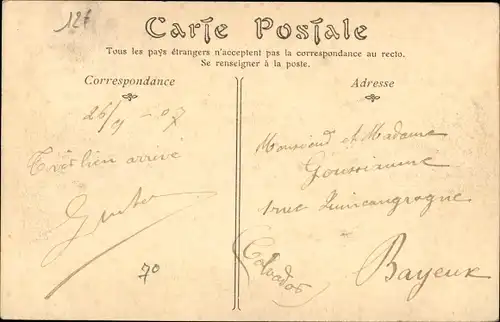 12f
Carte Postale
Tous les pays étrangers n'acceptent pas la correspondance au recto.
Se renseigner à la poste.
Correspondance
Adresse
26/9 - 07
Très bien arrivé
70
Monsieur et Madame
1 rue
Bayeux
Calvados